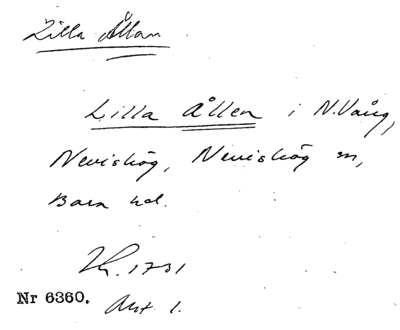 Lilla Ållan
Lilla Ållen i N. Vång,
Nevishög, Nevishög sn,
Bara hd.
1731
Nr 6360. Akt 1.